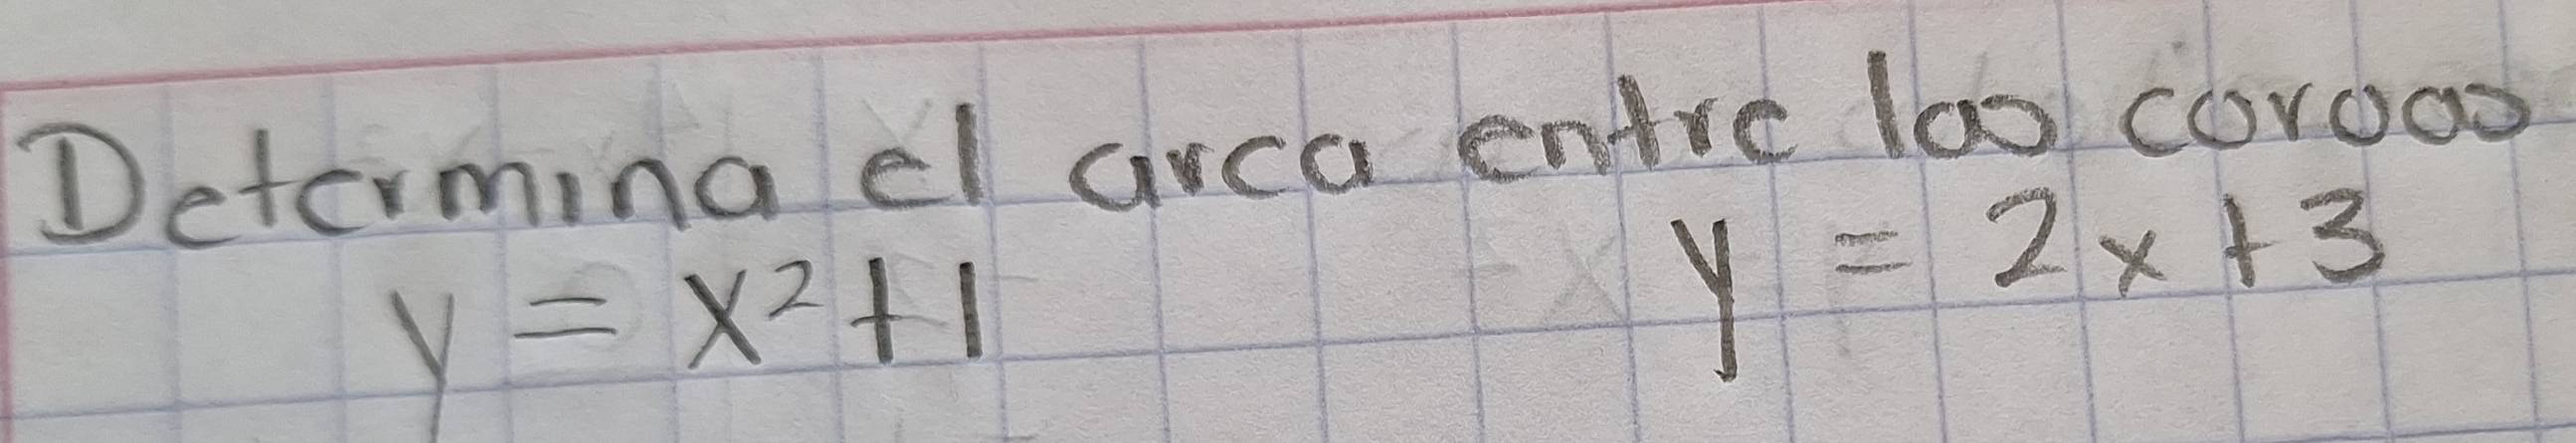 Determina el area entre las curvas
y = x² + 1 y = 2x + 3